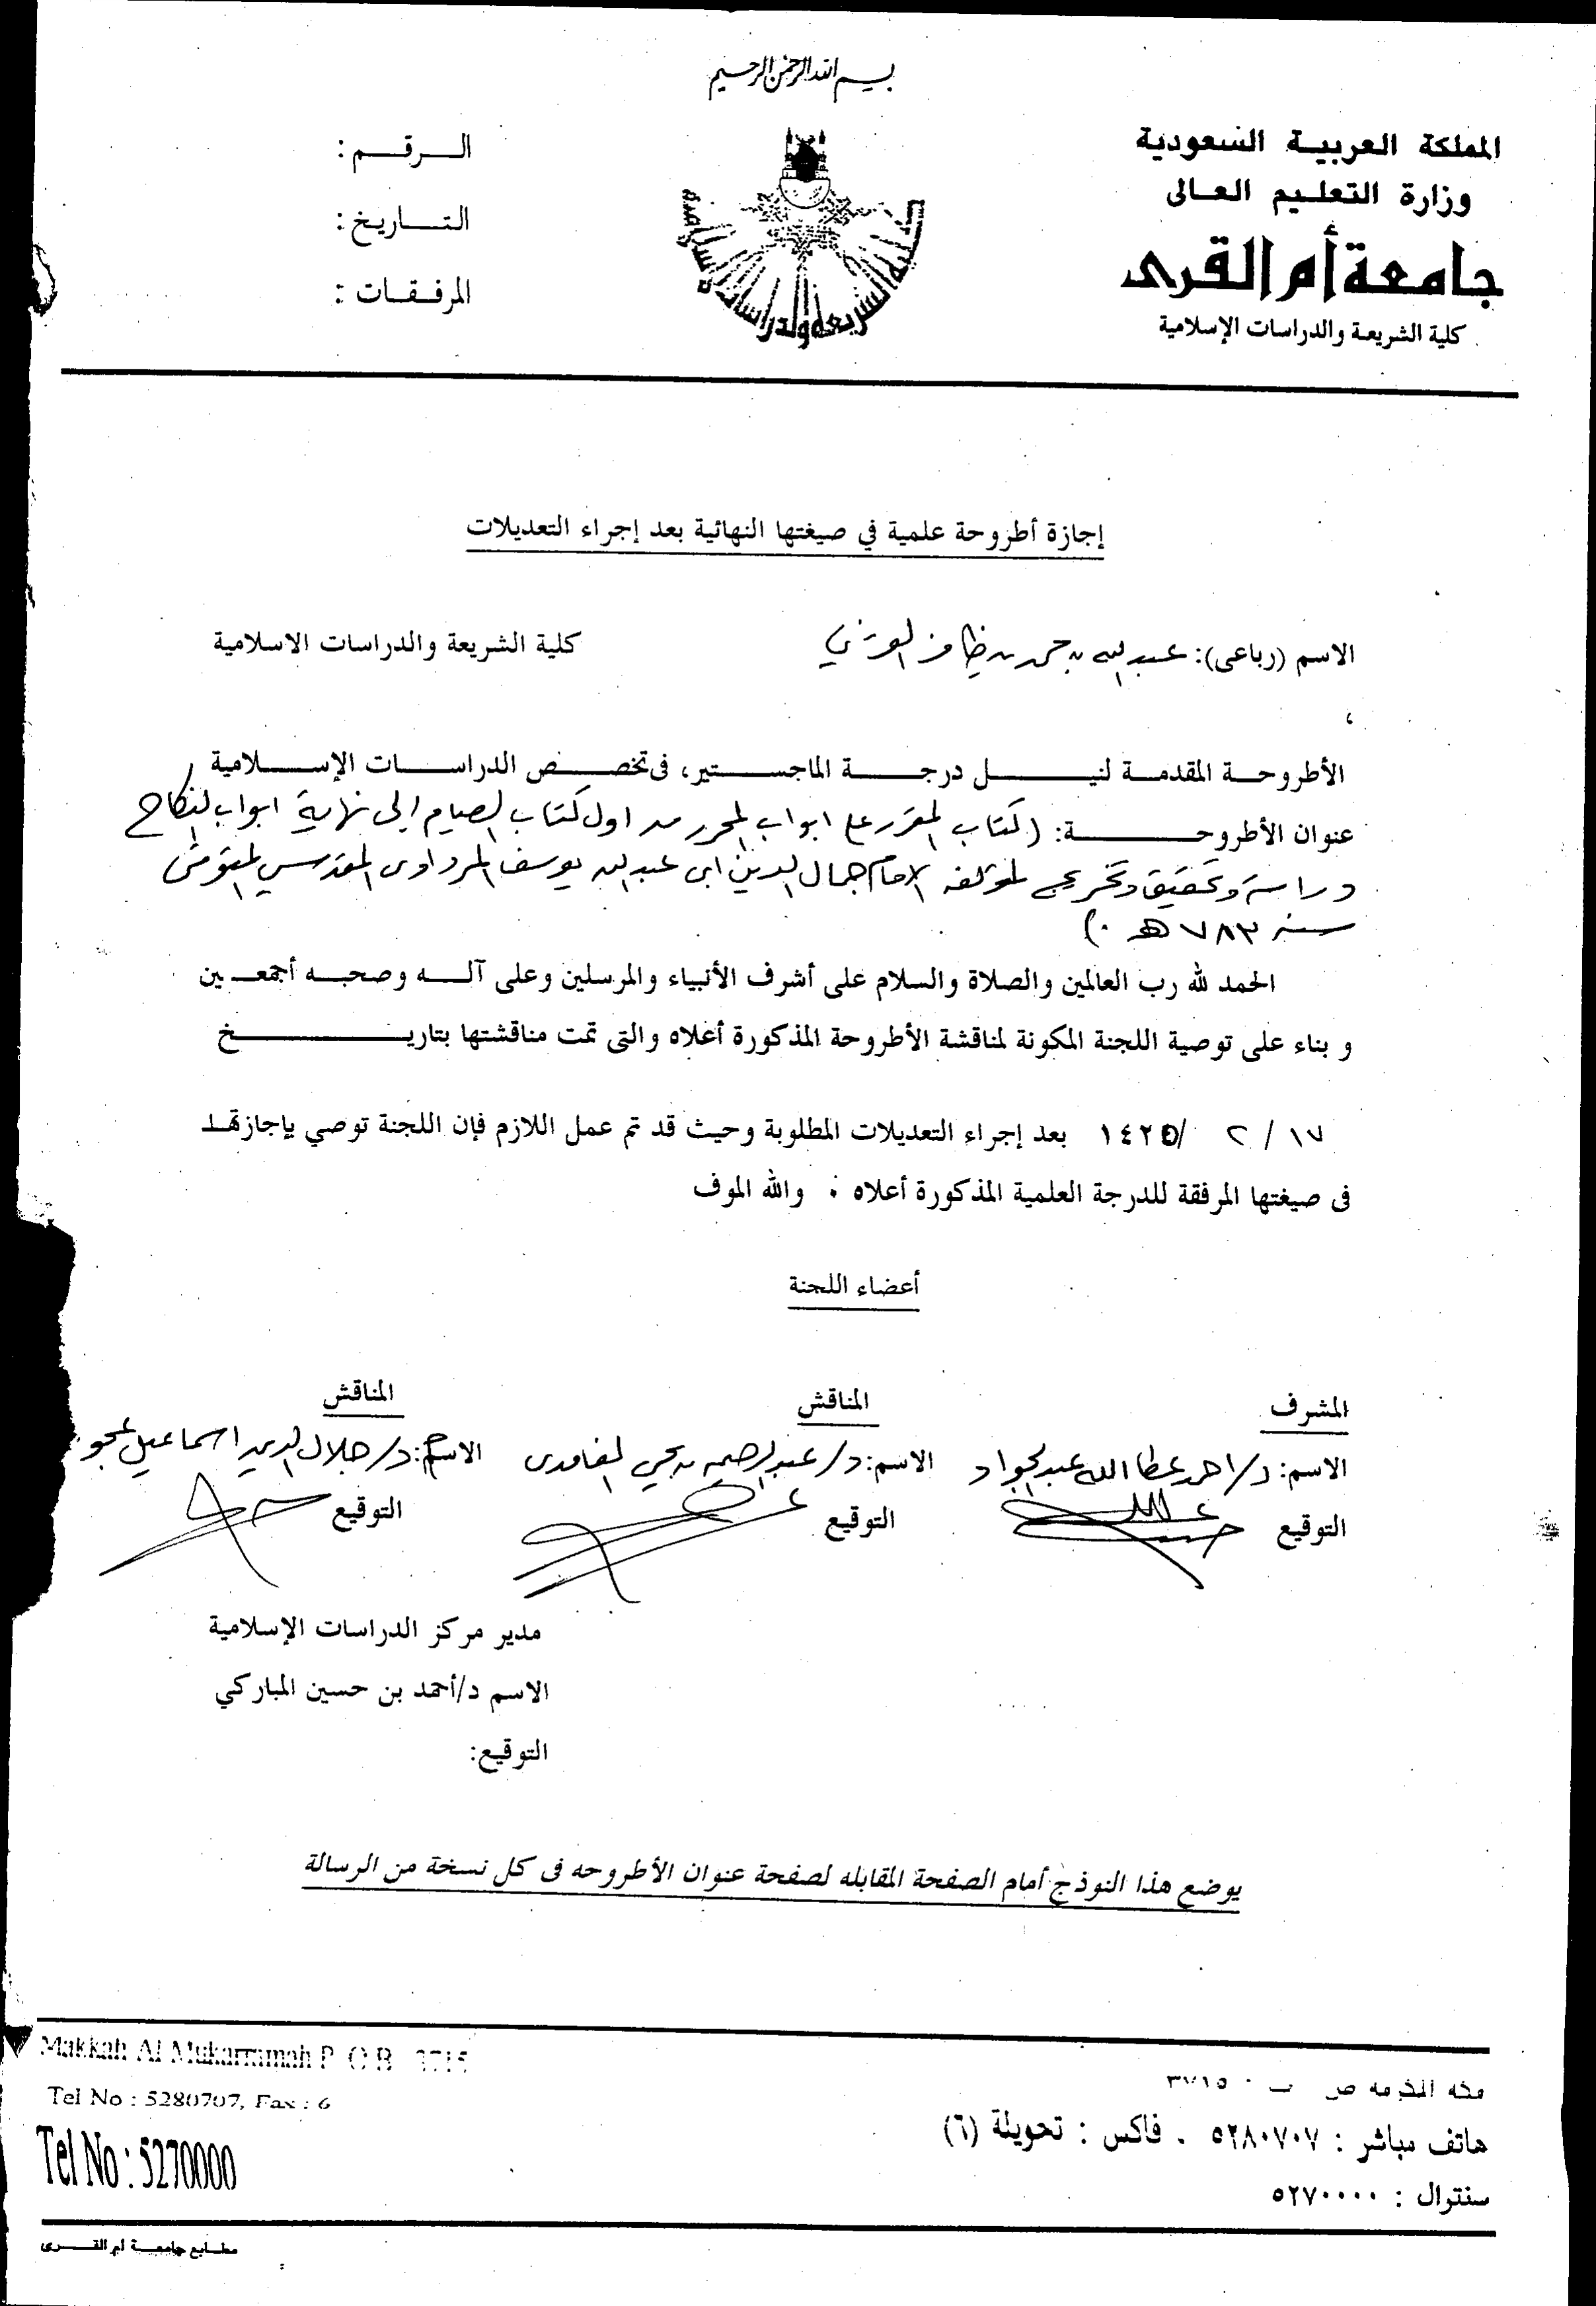 بسم الله الرحمن الرحيم
المملكة العربية السعودية
وزارة التعليم العالى
جامعة أم القرى
كلية الشريعة والدراسات الإسلامية
الرقم :
التاريخ :
المرفقات :
إجازة أطروحة علمية في صيغتها النهائية بعد إجراء التعديلات
الاسم (رباعى): عبد الله بن حمد بن ظافر
كلية الشريعة والدراسات الاسلامية
الأطروحة المقدمة لنيل درجة الماجستير، فى تخصص الدراسات الإسلامية
عنوان الأطروحة: (كتاب المقرر على ابواب المحرر من اول كتاب الصيام إلى نهاية ابواب النكاح
دراسة وتحقيق وتخريج لمؤلفه الامام جمال الدين ابى عبد الله يوسف المرداوى المقدسي المتوفى
سنة ٧٨٣ هـ .)
الحمد لله رب العالمين والصلاة والسلام على أشرف الأنبياء والمرسلين وعلى آله وصحبه أجمعين
و بناء على توصية اللجنة المكونة لمناقشة الأطروحة المذكورة أعلاه والتى تمت مناقشتها بتاريخ
١٧ / ٢ / ١٤٢٥ بعد إجراء التعديلات المطلوبة وحيث قد تم عمل اللازم فإن اللجنة توصي بإجازتها
فى صيغتها المرفقة للدرجة العلمية المذكورة أعلاه . والله الموف
أعضاء اللجنة
المشرف
المناقش
المناقش
الاسم: د/ احمد عطا الله عبد الجواد
الاسم: د/ عبد الرحيم بن يحي الغامدى
الاسم: د/ جلال الدين اسماعيل عجو
التوقيع
التوقيع
التوقيع
مدير مركز الدراسات الإسلامية
الاسم د/أحمد بن حسين المباركي
التوقيع:
يوضع هذا النوذج أمام الصفحة المقابله لصفحة عنوان الأطروحه فى كل نسخة من الرسالة
Makkah Al Mukarramah P. O.B 3715
Tel No : 5280707, Fax : 6
Tel No : 5270000
مكه المكرمه ص ب ٠ ٣٧١٥
هاتف مباشر : ٥٢٨٠٧٠٧ . فاكس : تحويلة (٦)
سنترال : ٥٢٧٠٠٠٠
مطابع جامعة ام القرى